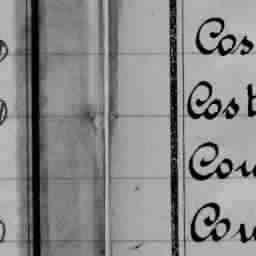 Cos
Cost
Cou
Cou